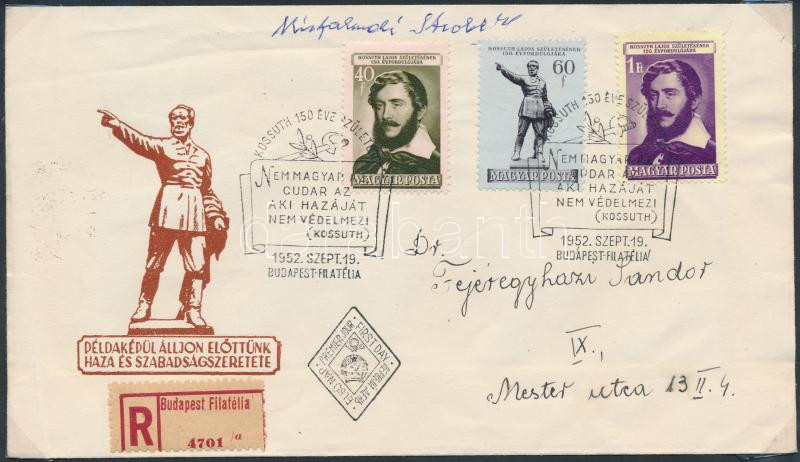 Kisfaludi Strobl
KOSSUTH LAJOS SZÜLETÉSÉNEK
150. ÉVFORDULÓJÁRA
40
f
MAGYAR POSTA
KOSSUTH LAJOS SZÜLETÉSÉNEK
150. ÉVFORDULÓJÁRA
60
f
MAGYAR POSTA
KOSSUTH LAJOS SZÜLETÉSÉNEK
150. ÉVFORDULÓJÁRA
1 Ft
MAGYAR POSTA
KOSSUTH 150 ÉVE SZÜLET
NEM MAGYAR,
CUDAR AZ
AKI HAZÁJÁT
NEM VÉDELMEZI
(KOSSUTH)
1952. SZEPT. 19.
BUDAPEST-FILATÉLIA
KOSSUTH 150 ÉVE SZÜ
NEM MAGYAR
CUDAR A
AKI HAZÁJÁT
NEM VÉDELMEZI
(KOSSUTH)
1952. SZEPT. 19.
BUDAPEST-FILATÉLIA
darabanth
Dr.
Fejéregyházi Sándor
IX.,
Mester utca 13 II. 4.
PÉLDAKÉPÜL ÁLLJON ELŐTTÜNK
HAZA ÉS SZABADSÁGSZERETETE
PREMIER JOUR
FIRST DAY
ELSŐ NAP
R
Budapest Filatélia
4701 /a